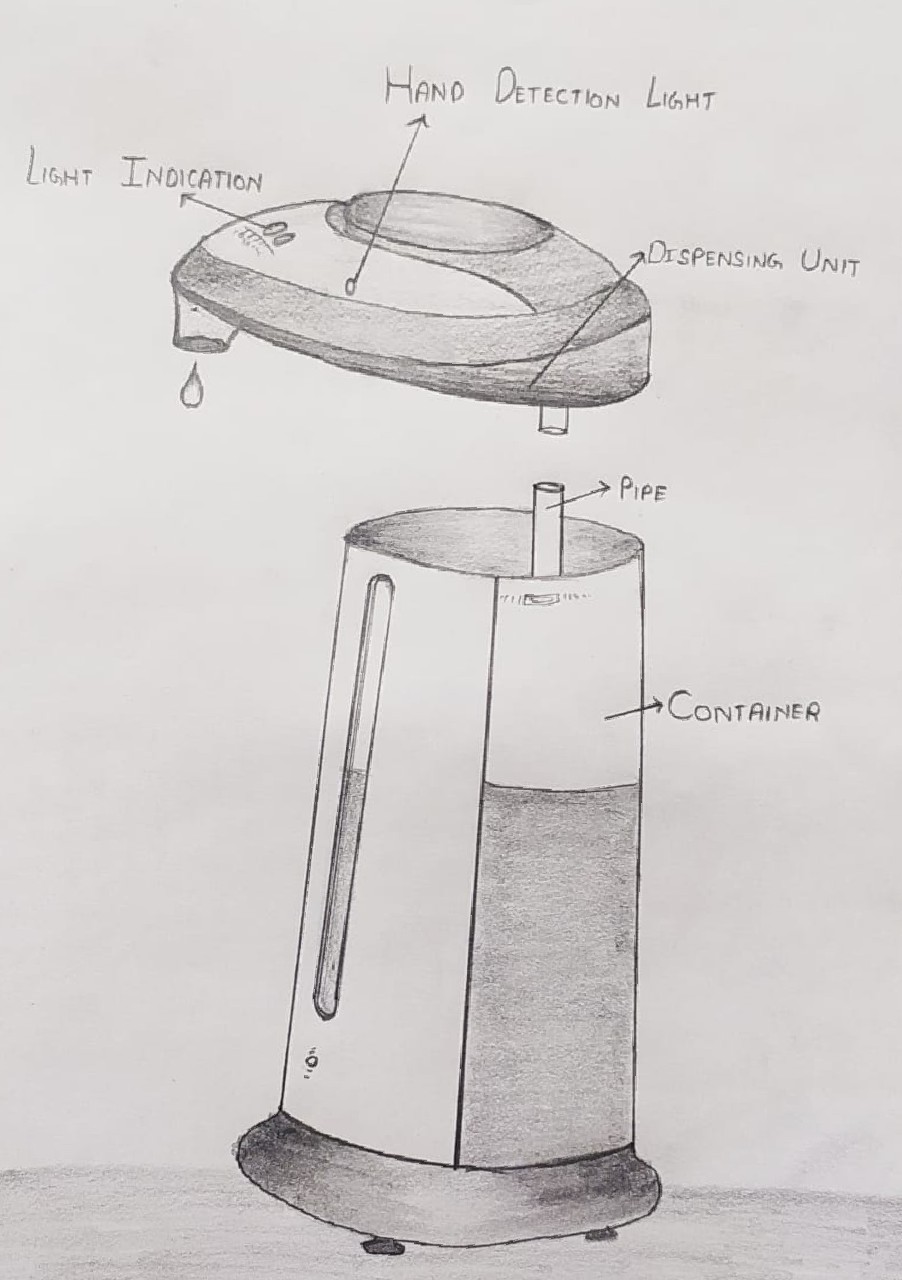 HAND DETECTION LIGHT
LIGHT INDICATION
DISPENSING UNIT
PIPE
CONTAINER